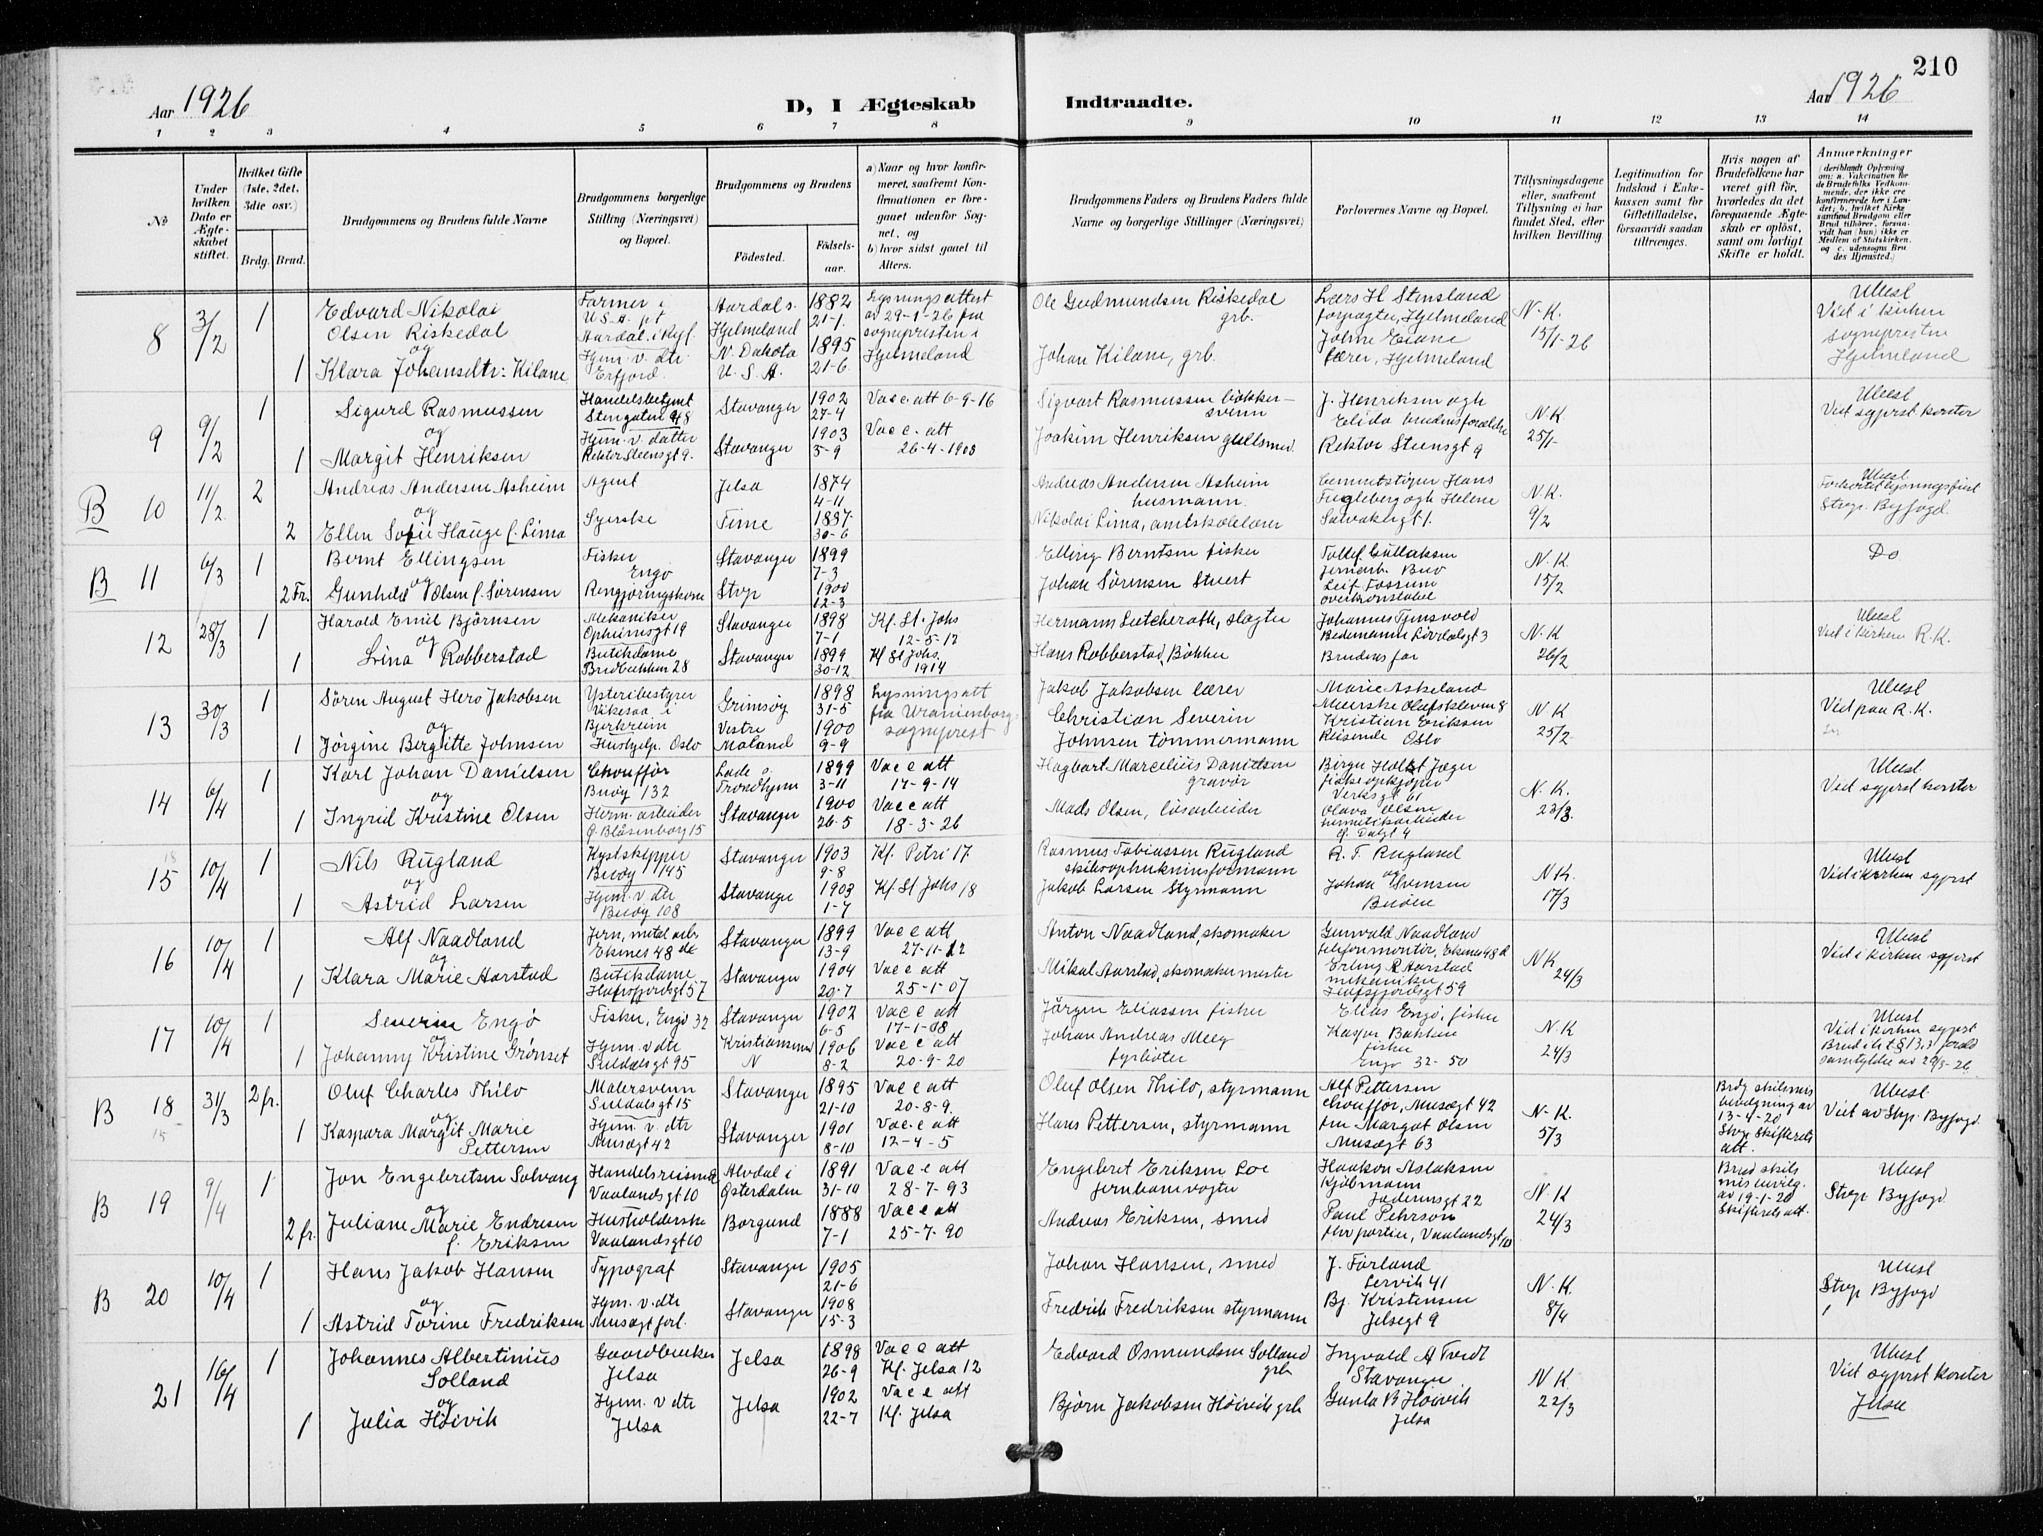 210
Aar 1926
D, I Ægteskab Indtraadte.
Aar 1926
1 2 3 4 5 6 7 8 9 10 11 12 13 14
№
Under hvilken Dato er Ægteskabet stiftet.
Hvilket Gifte (1ste, 2det, 3die osv.)
Brdg. Brud.
Brudgommens og Brudens fulde Navne
Brudgommens borgerlige Stilling (Næringsvei) og Bopæl.
Brudgommens og Brudens
Födested.
Födselsaar.
a) Naar og hvor konfirmeret, saafremt Konfirmationen er foregaaet udenfor Sognet, og
b) hvor sidst gaaet til Alters.
Brudgommens Faders og Brudens Faders fulde Navne og borgerlige Stillinger (Næringsvei)
Forlovernes Navne og Bopæl.
Tillysningsdagene eller, saafremt Tillysning ei har fundet Sted, efter hvilken Bevilling
Legitimation for Indskud i Enkekassen samt for Giftetilladelse, forsaavidt saadan tiltrænges.
Hvis nogen af Brudefolkene har været gift för, hvorledes da det foregaaende Ægteskab er oplöst, samt om lovligt Skifte er holdt.
Anmærkninger (deriblandt Oplysning om: a. Vakcination for de Brudefolks Vedkommende, der ikke ere konfirmerede her i Landet; b. hvilket Kirkesamfund Brudgom eller Brud tilhörer, forsaavidt han (hun) ikke er Medlem af Statskirken, og c. udensogns Brudes Hjemsted.)
8 3/2 1 Edvard Nikolai Olsen Riskedal Farmer i U.S.A. pt Aardal i Ryf. Aardal s. Hjelmeland 1882 21-1. Lysningsattest av 29-1-26 fra sognepresten i Hjelmeland Ole Gudmundsen Riskedal grb. Lars H Stensland forpagter, Hjelmeland N.K. 15/1-26 Ubest Viet i kirken sognepresten Hjelmeland
og
1 Klara Johansdtr. Kilane Hjem. v. dtr Erfjord. N. Dakota U.S.A. 1895 21-6 Johan Kilane, grb. Johne Eiane lærer, Hjelmeland
9 9/2 1 Sigurd Rasmussen Handelsbetjent Stengaten 48 Stavanger 1902 27-4 Vacc att 6-9-16 Sigvart Rasmussen bøkkersvenn J. Henriksen ogh Elida brudens forældre N.K 25/1- Ubest Viet sgprst kontor
og
1 Margit Henriksen Hjem. v. datter Rektor Steensgt 9. Stavanger 1903 5-9 Vacc. att 26-4-1903 Joakim Henriksen gullsmed Rektor Steensgt 9
B 10 11/2 2 Andreas Andersen Asheim Agent Jelsa 1874 4-11 Andreas Andersen Asheim husmann Cementstøper Hans Fugleberg ogh Helene N.K. 9/2 Ubest Forkortet lysningsfrist Stvgr. Byfogd.
og
2 Ellen Sofie Hauge f. Lima Syerske Time 1887 30-6 Nikolai Lima, amtskolelærer
B 11 6/3 1 Bernt Ellingsen Fisker Engø Stavanger 1899 7-3 Elling Berntsen fisker N.K. 15/2 Do
og
2 Fr. Gunhild Olsen f. Sørensen Rengjøringskone Stvgr 1900 12-3 Johan Sørensen Stuert Leif Fossum overkonstabel
12 28/3 1 Harald Emil Bjørnsen Mekaniker Opheimsgt 19 Stavanger 1898 7-1 Kf. St. Johs 12-5-12 Slagter Bedemann Lövdalsgt 3 N.K 26/2 Ubest Viet i kirken R.K.
og
1 Lina Robberstad Butikdame 28 Stavanger 1899 30-12 Kf St Johs. 1914 Hans Robberstad, Bøkker Brudens far
13 30/3 1 Sören August Hero Jakobsen Ysteribestyrer Vikesaa i Bjerkreim Grimsøy 1898 31-5 Lysningsatt fra Uranienborg sogneprest Jakob Jakobsen lærer Marie Askeland Meierske Olafskleven 8 N K 25/2 Ubest Viet paa R.K.
og
1 Jørgine Bergitte Johnsen Hushjelp. Oslo Vestre Moland 1900 9-9 Christian Severin Johnsen tömmermann Kristian Eriksen Reisende Oslo
14 6/4 1 Karl Johan Danielsen Chauffør Buøy 132 Lade Trondhjem 1899 3-11 Vacc att 17-9-14 Hagbart Marcelius Danielsen gravør Birger Holst Jæger Verksgt 61 N.K. 23/3. Ubest. Viet sgprst kontor
og
1 Ingrid Kristine Olsen Herm. arbeider Ø. Blåsenborg 15 Stavanger 1900 26-5 Vacc att 18-3-26 Mads Olsen, løsarbeider Olava Olsen hermetikarbeider
15 10/4 1 Nils Rugland Kystskipper Buøy 145 Stavanger 1903 9-8 Kf. Petri 17. Rasmus Tobiassen Rugland skibsophukningsformann R. T. Rugland N K. 17/3 Ubest Viet i kirken sgprst
og
1 Astrid Larsen Hjem. v dtr Buøy 108 Stavanger 1903 1-7 Kf. St Johs 18 Jakob Larsen Styrmann Johan Svensen Buøen
16 10/4 1 Alf Naadland Jern, metal arb. Eksnes 48 de Stavanger 1899 13-9 Vacc att 27-11-12 Anton Naadland, skomaker Gunvald Naadland telefonmontör, Eksnes 48 d N K 24/3 Ubest Viet i kirken sgprst
og
1 Klara Marie Aarstad Butikdame Hafrsfjordsgt 57 Stavanger 1904 20-7 Vacc att 25-1-07 Mikal Aarstad, skomakermester Erling R Aarstad mekaniker Hafsfjordsgt 59
17 10/4 1 Severin Engø Fisker, Engø 32 Stavanger 1902 6-5 Vacc att 17-1-08 Jörgen Eliassen fisker Elias Engø, fisker N.K 24/3 Ubest Viet i kirken sgprst
og
1 Johanny Kristine Grønset Hjem. v dtr Suldalsgt 95 Kristiansund N 1906 8-2 Vacc att 20-9-20 Johan Andreas Meeg fyrbøter Kaspar Bakken fisker Engø 32-50
B 18 31/3 2 fr. Oluf Charles Thilo Malersvenn Suldalsgt 15 Stavanger 1895 21-10 Vacc att 20-8-9. Oluf Olsen Thilo, styrmann Alf Pettersen Chauffør, Musægt 42 N-K. 5/3 Brdg skilsmisbevilgning av 13-4-20 Stvgr Skifterets att. Ubest. Viet av Stvgr. Byfogd.
og
1 Kaspara Margit Marie Pettersen Hjem. v. dtr Musægt 42 Stavanger 1901 8-10 Vacc att 12-4-5 Hans Pettersen, styrmann fru Margot Olsen Musægt 63
B 19 9/4 1 Jon Engebretsen Solvang Handelsreisende Vaalandsgt 10 Alvdal i Østerdalen 1891 31-10 Vacc att 28-7-93 Engebret Eriksen Loe jernbanevogter Haakon Aslaksen Kjøbmann Jadarensgt 22 N.K 24/3 Brud skilsmis bevilg. av 19-1-20 Skifterets att. Ubest Stvgr Byfogd
og
2 fr. Juliane Marie Endresen f. Eriksen Husholderske Vaalandsgt 10 Borgund 1888 7-1 Vacc att 25-7-90 Andreas Eriksen, smed Paul Pehrson Vaalandsgt 10
B 20 10/4 1 Hans Jakob Hansen Typograf Stavanger 1905 21-6 Johan Hansen, smed J. Förland Lervik 41 N.K. 8/4 Ubest Stvgr Byfogd
og
1 Astrid Torine Fredriksen Hjem. v. dtr Musægt forl. Stavanger 1908 15-3 Fredrik Fredriksen styrmann Bj. Kristensen Jelsegt 9
21 16/4 1 Johannes Albertinius Solland Gaardbruker Jelsa Jelsa 1898 26-9 Vacc att Kf. Jelsa 12 Edvard Osmundsen Solland grb Ingvald A Tveit Stavanger N K 22/3 Ubest Viet sgprst kontor Jelsa
og
1 Julia Høivik Hjem. v dtr Jelsa Jelsa 1902 22-7 Vacc att Kf. Jelsa Bjørn Jakobsen Høivik grb Gunla B Høivik Jelsa